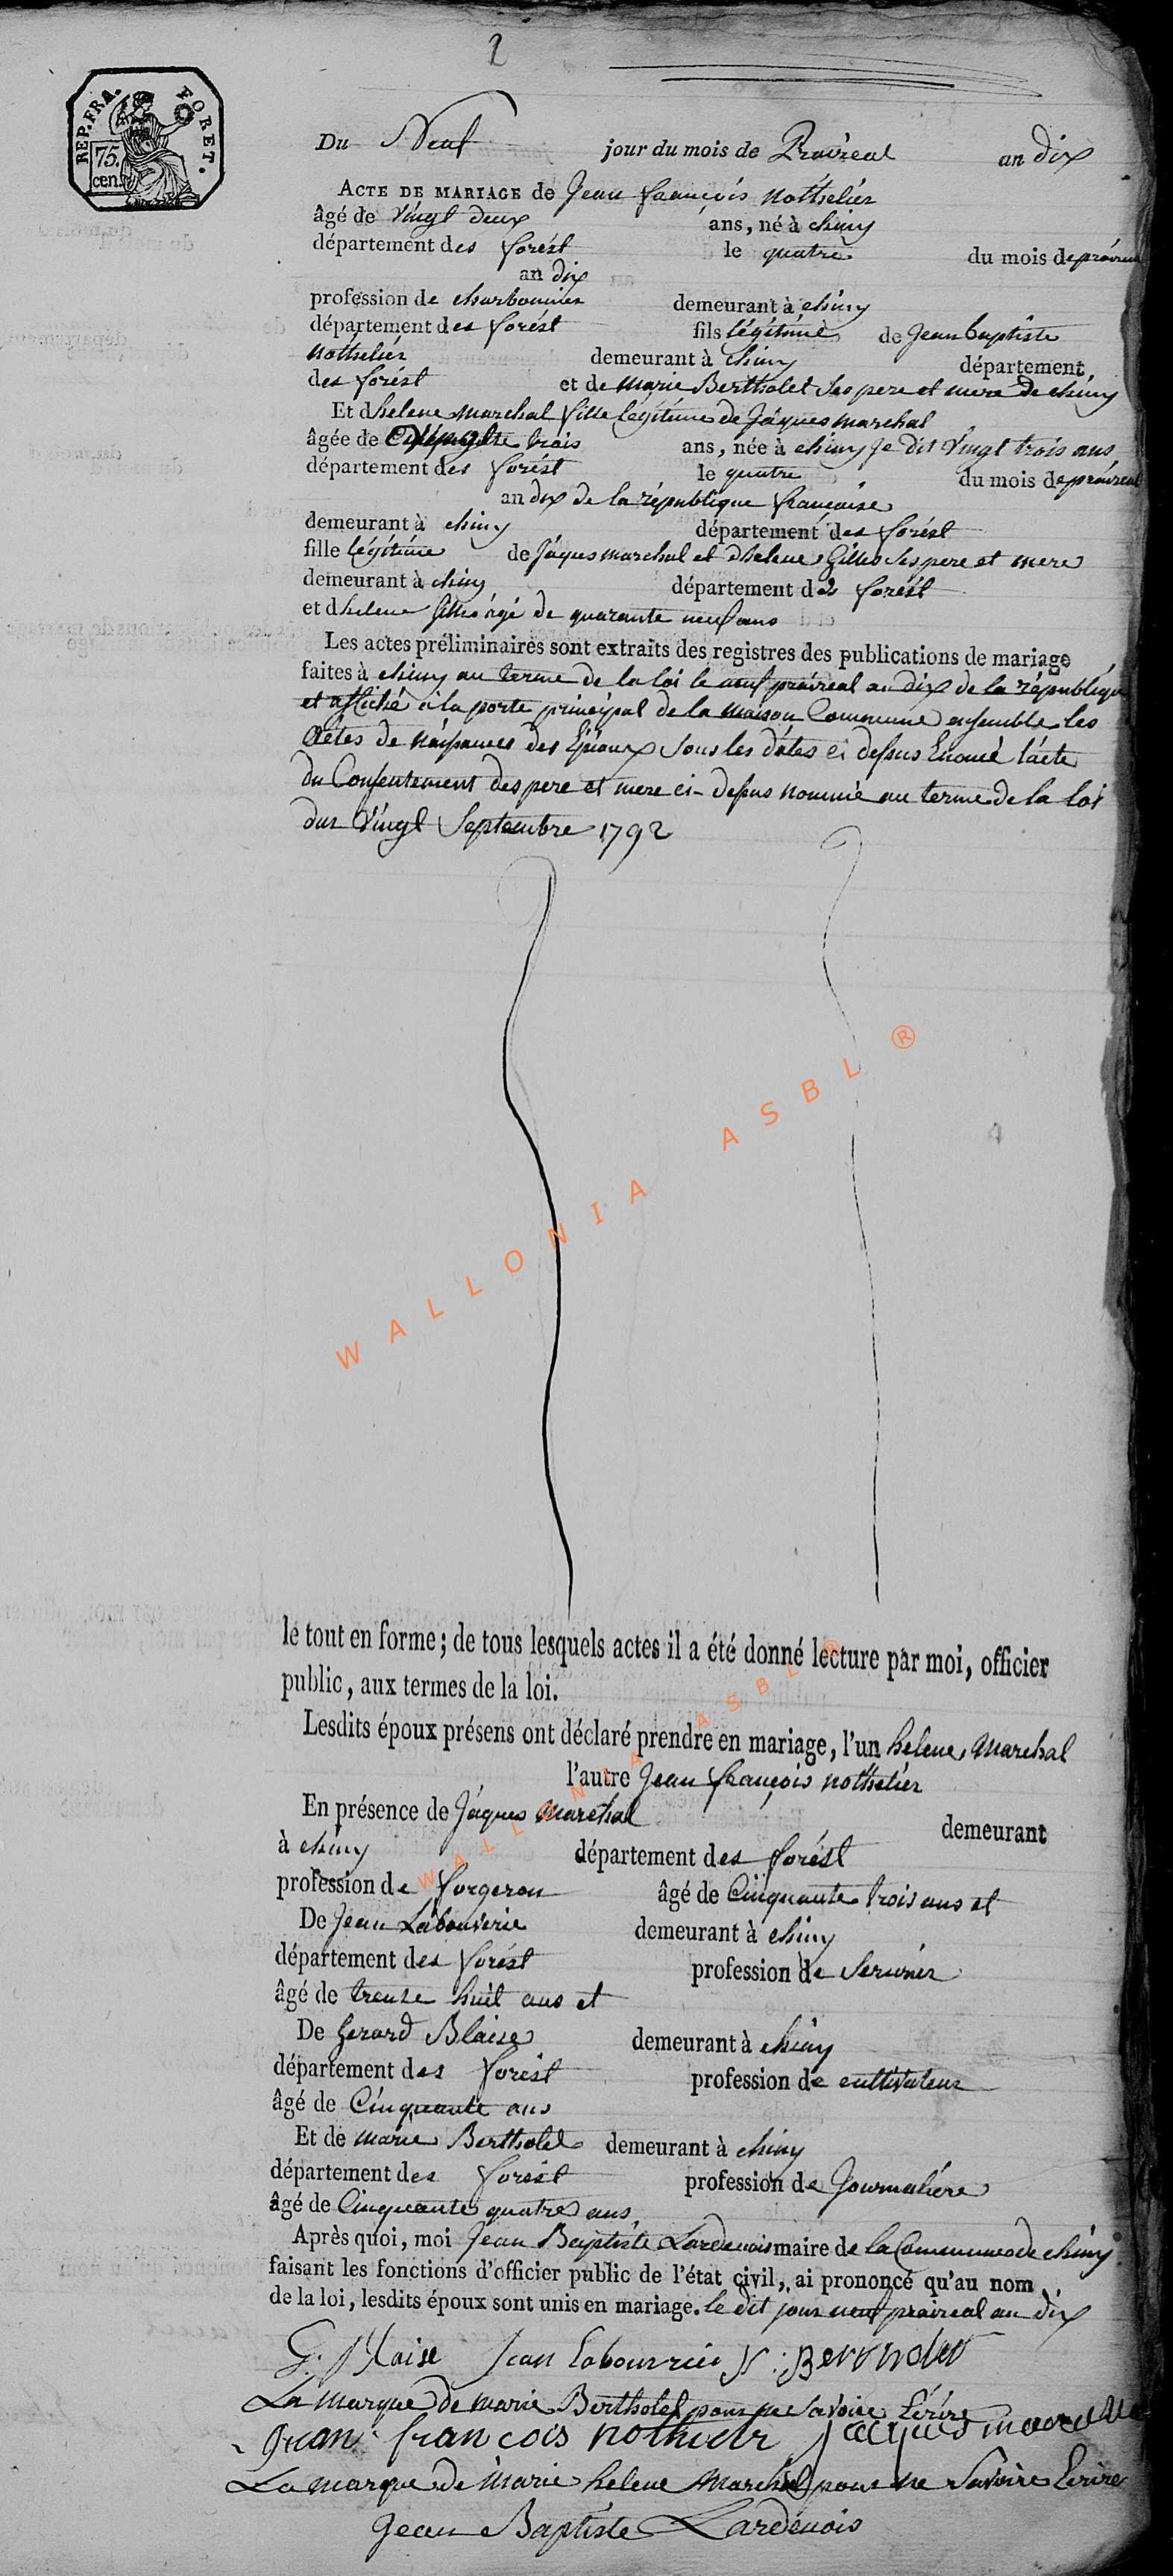 2
REP. FRA. FORET.
75. cen.
Du Neuf jour du mois de Prairéal an dix
ACTE DE MARIAGE de Jean francois nothelier
âgé de vingt deux ans, né à chiny
département des forést le quatre du mois de prairéal
an dix
profession de charbonnier demeurant à chiny
département des forést fils légitime de Jean baptiste
nothelier demeurant à chiny département
des forést et de marie Bertholet Ses pere et mere de chiny
Et dhelene marchal fille légitime de Jàques marchal
âgée de trois ans, née à chiny Je dit Vingt trois ans
département des forést le quatre du mois de prairéal
an dix de la république francaise
demeurant à chiny département des forést
fille légitime de Jàques marchal et dhelene Gilles Ses pere et mere
demeurant à chiny département des forést
et dhelene Gilles agé de quarante neuf ans
Les actes préliminaires sont extraits des registres des publications de mariage
faites à chiny au terme de la loi le neuf prairéal an dix de la république
et affiché à la porte principal de la maison Commune ensemble les
actes de naissances des Epoux Sous les dates ci dessus Enoncé l'acte
du Consentement des pere et mere ci-dessus nommé au terme de la loi
du Vingt Septembre 1792
WALLONIA ASBL ®
le tout en forme; de tous lesquels actes il a été donné lecture par moi, officier
public, aux termes de la loi.
Lesdits époux présens ont déclaré prendre en mariage, l'un helene Marchal
l'autre Jean françois nothelier
En présence de Jàques marchal demeurant
à chiny département des forést
profession de forgeron âgé de Cinquante trois ans et
De Jean Labouverie demeurant à chiny
département des forést profession de
âgé de trente huit ans et
De Gerard Blaise demeurant à chiny
département des forést profession de cultivateur
âgé de Cinquante ans
Et de marie Bertholet demeurant à chiny
département des forést profession de Journaliére
âgé de Cinquante quatre ans
Après quoi, moi Jean Baptiste Lardenois maire de la Commune de chiny
faisant les fonctions d'officier public de l'état civil, ai prononcé qu'au nom
de la loi, lesdits époux sont unis en mariage. le dit jour neuf prairéal an dix
WALLONIA ASBL ®
G. Blaise Jean Labouvrie
La marque de marie Bertholet pour ne Savoire Ecrire
Jean francois nothelier Jacques
La marque de marie helene Marchal pour ne Savoire Ecrire
Jean Baptiste Lardenois